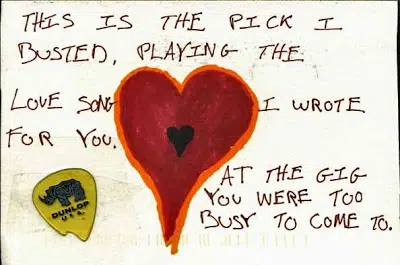 THIS IS THE PICK I
BUSTED, PLAYING THE
LOVE SONG I WROTE
FOR YOU.
AT THE GIG
YOU WERE TOO
BUSY TO COME TO.
DUNLOP
U.S.A.